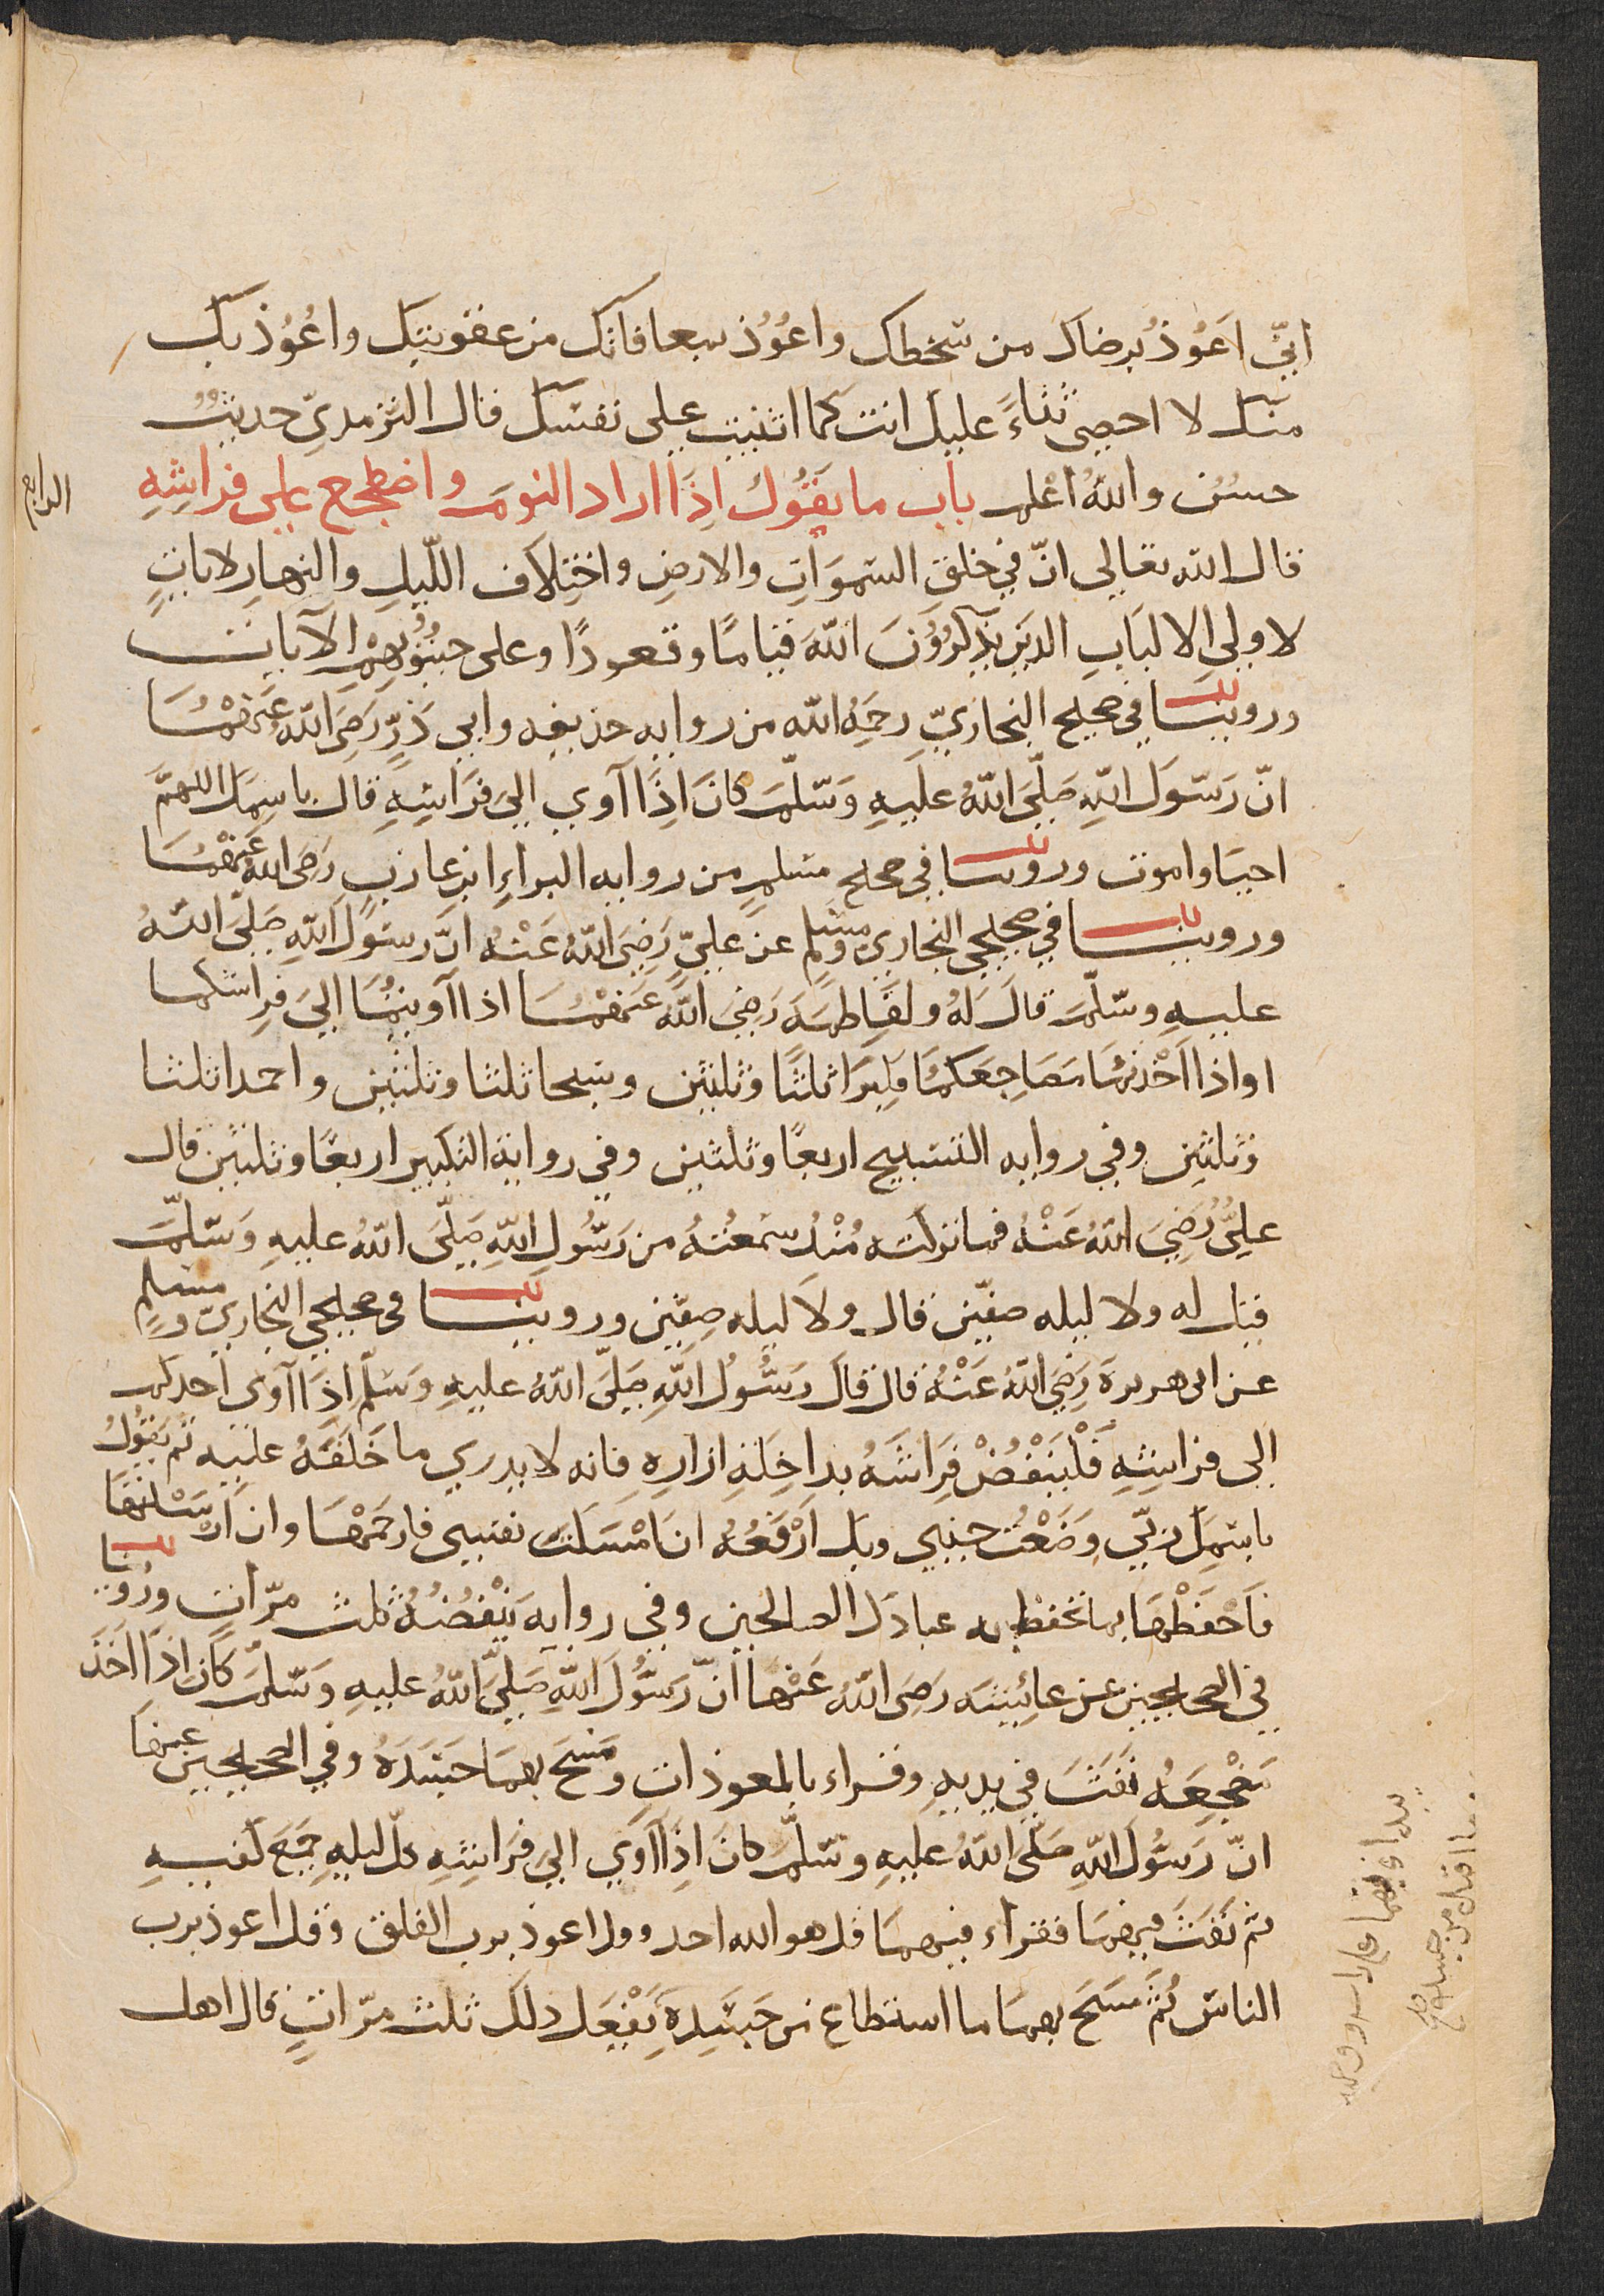 اني اَعُوذُ برضاك من سَخطك واعُوُذ بمعافاتك من عقوبتِك واعُوُذ بك
منك لا احصي ثناءً عليك انت كما اثنيت على نفسك قال الترمديّ حديثٌ
حسنٌ واللهُ اَعْلم باب ما يقول اِذَا اراد النومَ واضطجع على فراشِهِ
الرابع
قال الله تعالى انّ في خلق السموَاتِ والارضِ واختِلاف اللّيلِ والنهارِ لاياتٍ
لاولِي الالبَابِ الدين يذكرُوُنَ اللهَ قيامًا وقعودًا وعلى جنُوُبِهِمْ الآيات
وروينا في صحيح البخاريّ رحمَهُ الله من روايه حذيفه وابي ذرٍّ رَضِيَ الله عَنْهُمَا
انّ رَسُولَ اللهِ صَلّىَ اللهُ علَيهِ وَسَلّمَ كانَ اِذَا آوي اليَ فرَاشِهِ قال باسِمكَ اللهمَّ
احيَا واموت وروينا في صحيح مسلمٍ من روايه البراءِ ابنِ عازبٍ رَضِيَ اللهُ عَنْهُمَا
وروينا في صحيحي البخاريّ ومسلم عن عَليّ رَضِيَ اللهُ عَنْهُ انَّ رسولَ اللهِ صَلّىَ اللهُ
عليهِ وسَلّمَ قالَ لَهُ ولفاطِمَه رَضِيَ اللهُ عَنهُمْا اذا آويتُمَا اليَ فِراشكما
اواذا اَخْذتُمَا مَضَاجِعَكمَا فكبِرَا ثلثًا وثلثين وسَبحا ثلثا وثلثين واحمدا ثلثا
وثلثين وفي روايه التسبيح اربعًا وثلثين وفي رواية التكبير اربعًا وثلثين قال
عليُّ رُضِيَ اللهُ عَنْهُ فما تركته مُنْذُ سَمعْتُهُ من رَسُولِ اللهِ صَلّىَ اللهُ عليهِ وَسَلّمَ
قيل له ولا ليله صفّين قال ولا ليله صِفّين وروينا في صحيحي البخاريّ ومسلمٍ
عن ابي هريرةَ رَضِيَ اللهُ عَنْهُ قال قالَ رَسُولُ اللهِ صَلّىَ اللهُ عليهِ وسَلّمَ اِذَا آوى احدكم
الى فراشِهِ فَلْيَنْفُضْ فِرَاشَهُ بداخِلَةِ ازارِهِ فانه لا يدري ما خَلَفَهُ عليه ثم يقُولُ
باسْمِكَ ربّي وَضَعْتُ جنبي وبك اَرْفَعُهُ ان اَمْسَكتَ نفسِي فارحَمْهَا وان اَرْسَلْتَهَا
فَاحْفَظْهَا بما تحفظ به عبادَك الصالحين وفي روايه يَنْفُضُهُ ثلث مرّاتٍ ورُوينا
في الصحيحين عن عائِشه رَضِيَ اللهُ عَنْهَا انّ رَسُولَ اللهِ صَلّيَ اللهُ عليهِ وَسَلّمَ كان اِذَا اَخَذَ
مَضْجِعَهُ نَفَثَ في يديهِ وقراء بالمعوذات ومَسَحَ بهِمَا جَسَدَهُ وفي الصحيحين عنها
انّ رَسُولَ اللهِ صَلّىَ اللهُ عليهِ وسَلّمَ كانَ اِذَا آوَي اليَ فرَاشِهِ كلّ ليلهٍ جَمَعَ كفيهِ
ثم نَفَثَ فيهِمَا فقراء فيهِمَا قل هو الله احد وقل اعوذ برب الفلق وقل اعوذ برب
الناس ثُمَّ مَسَحَ بهِمَا ما استطاع من جَسَدِهِ يَفْعَل ذلكَ ثلثَ مرّاتٍ قال اهل
يبدا بهما على راسه ووجهه
وما اقبل من جسده صح